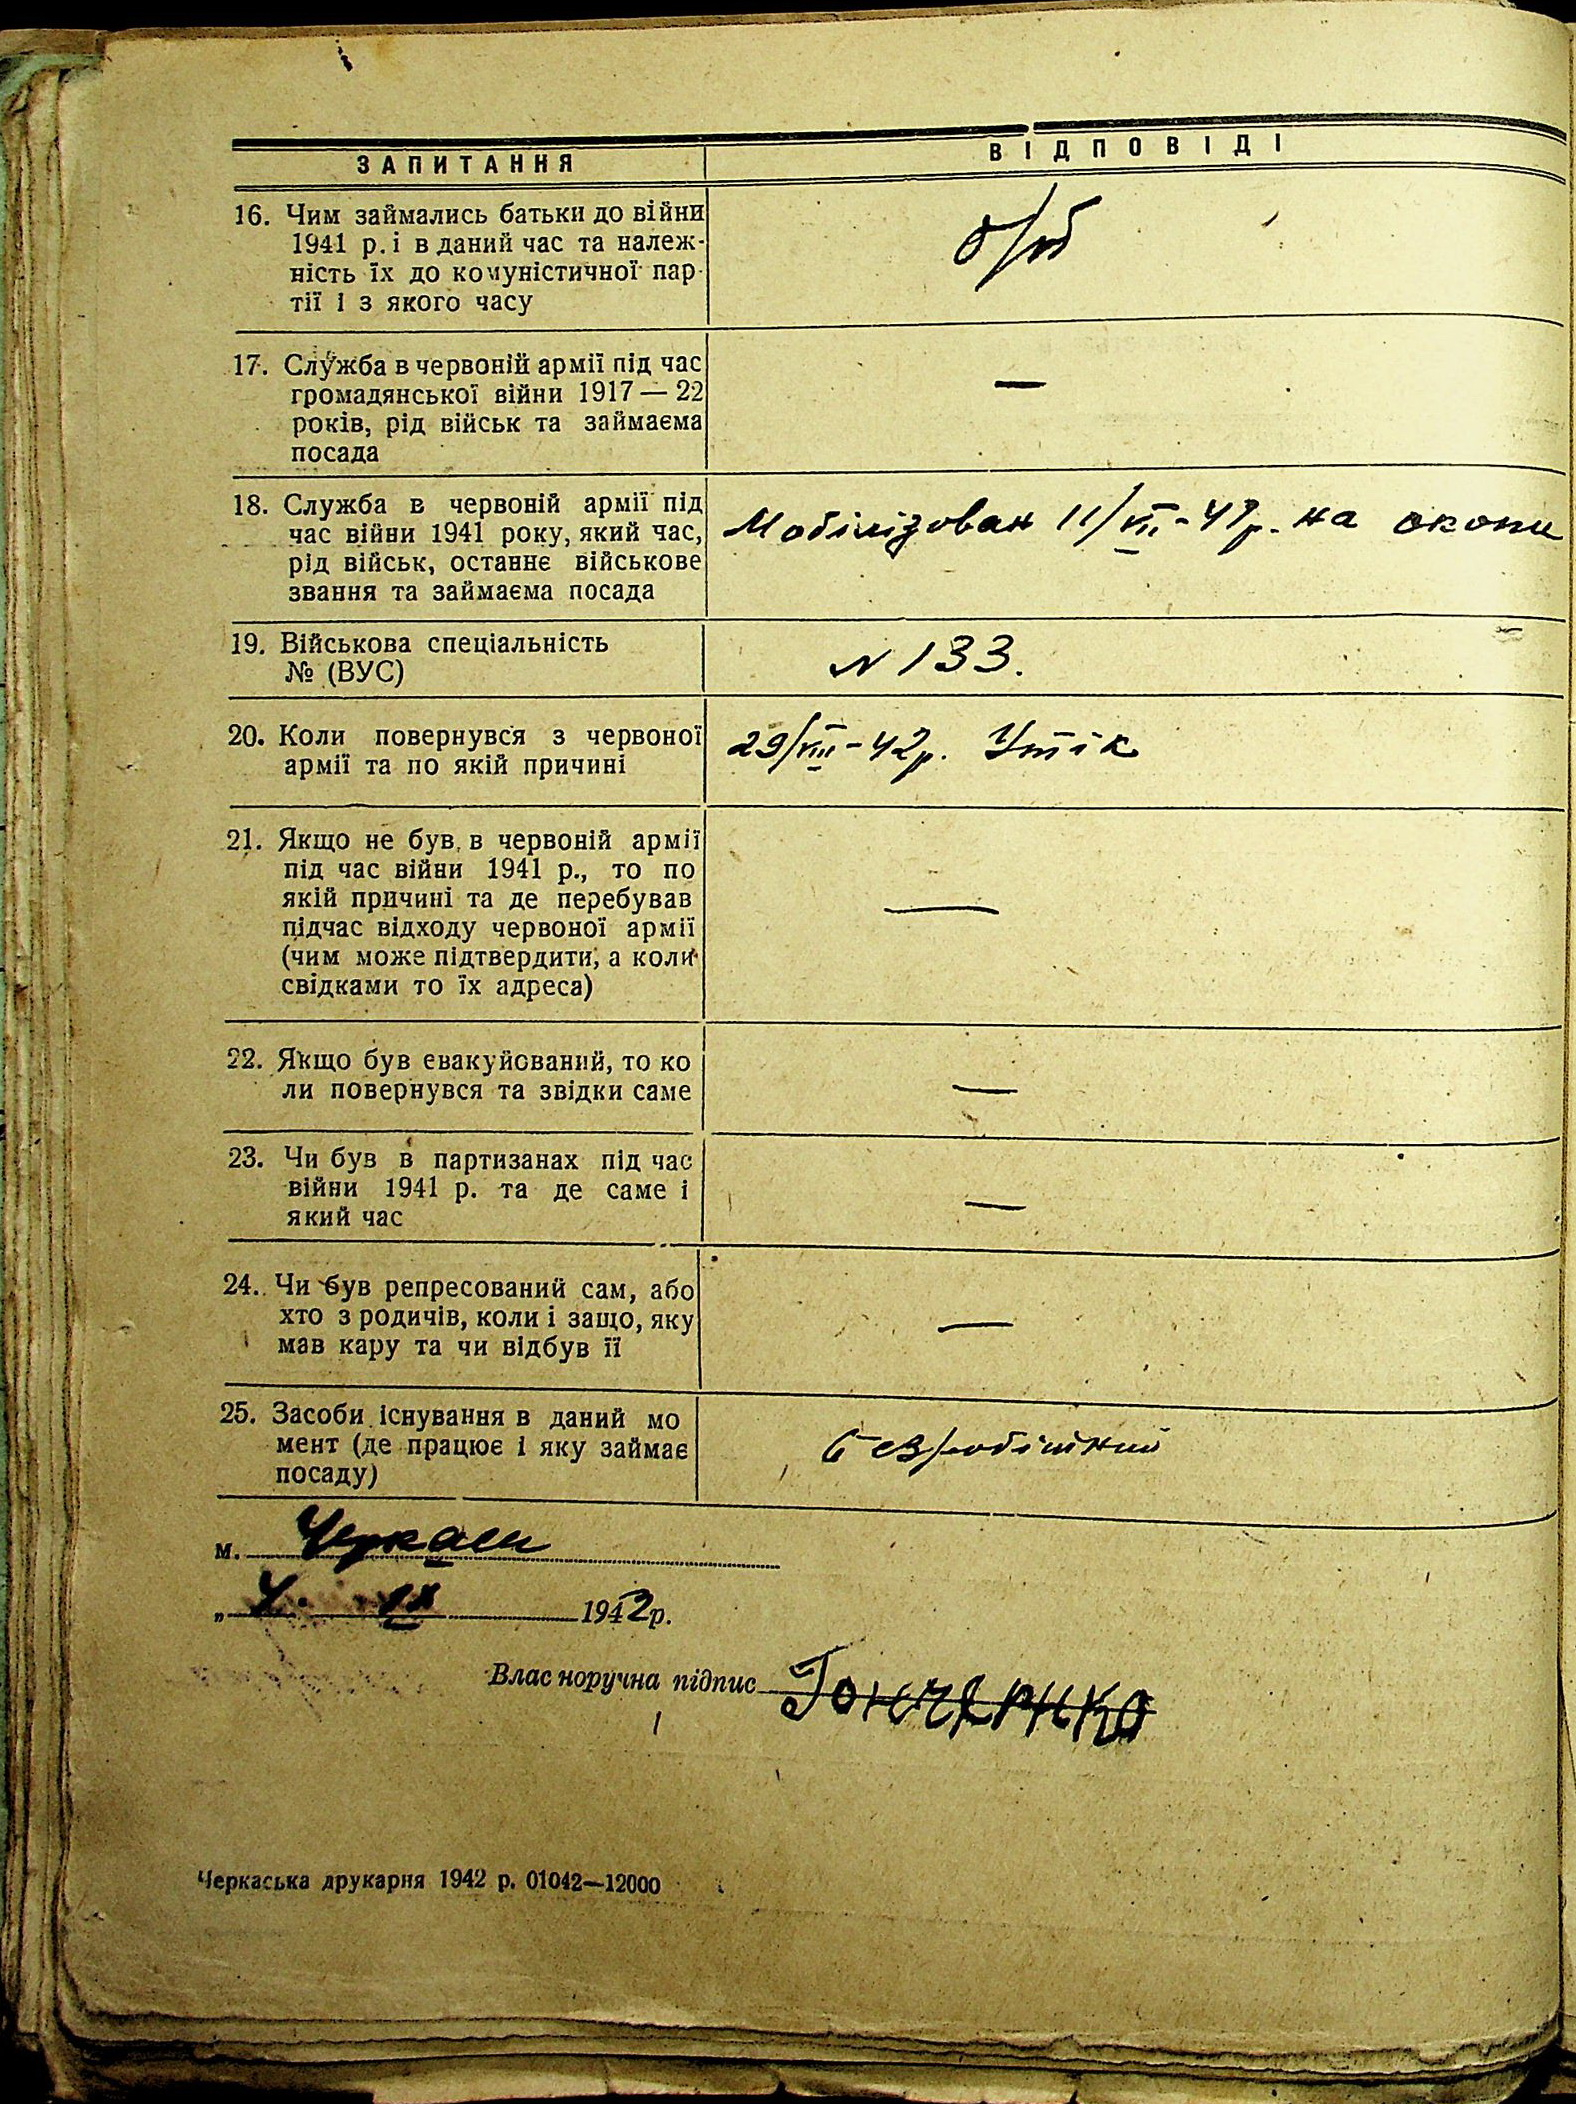 ЗАПИТАННЯ ВІДПОВІДІ
16. Чим займались батьки до війни
1941 р. і в даний час та належ-
ність їх до комуністичної пар-
тії і з якого часу
б/п
17. Служба в червоній армії під час
громадянської війни 1917 — 22
років, рід військ та займаєма
посада
—
18. Служба в червоній армії під
час війни 1941 року, який час,
рід військ, останнє військове
звання та займаєма посада
Мобілізован 11/VII-41р. на окопи
19. Військова спеціальність
№ (ВУС)
N 133.
20. Коли повернувся з червоної
армії та по якій причині
29/VIII-42р. Утік
21. Якщо не був в червоній армії
під час війни 1941 р., то по
якій причині та де перебував
підчас відходу червоної армії
(чим може підтвердити, а коли
свідками то їх адреса)
—
22. Якщо був евакуйований, то ко
ли повернувся та звідки саме
—
23. Чи був в партизанах під час
війни 1941 р. та де саме і
який час
—
24. Чи був репресований сам, або
хто з родичів, коли і защо, яку
мав кару та чи відбув її
—
25. Засоби існування в даний мо
мент (де працює і яку займає
посаду)
безробітний
м. Черкаси
„ 4. IX 1942р.
Влас норучна підпис Гончаренко
Черкаська друкарня 1942 р. 01042—12000